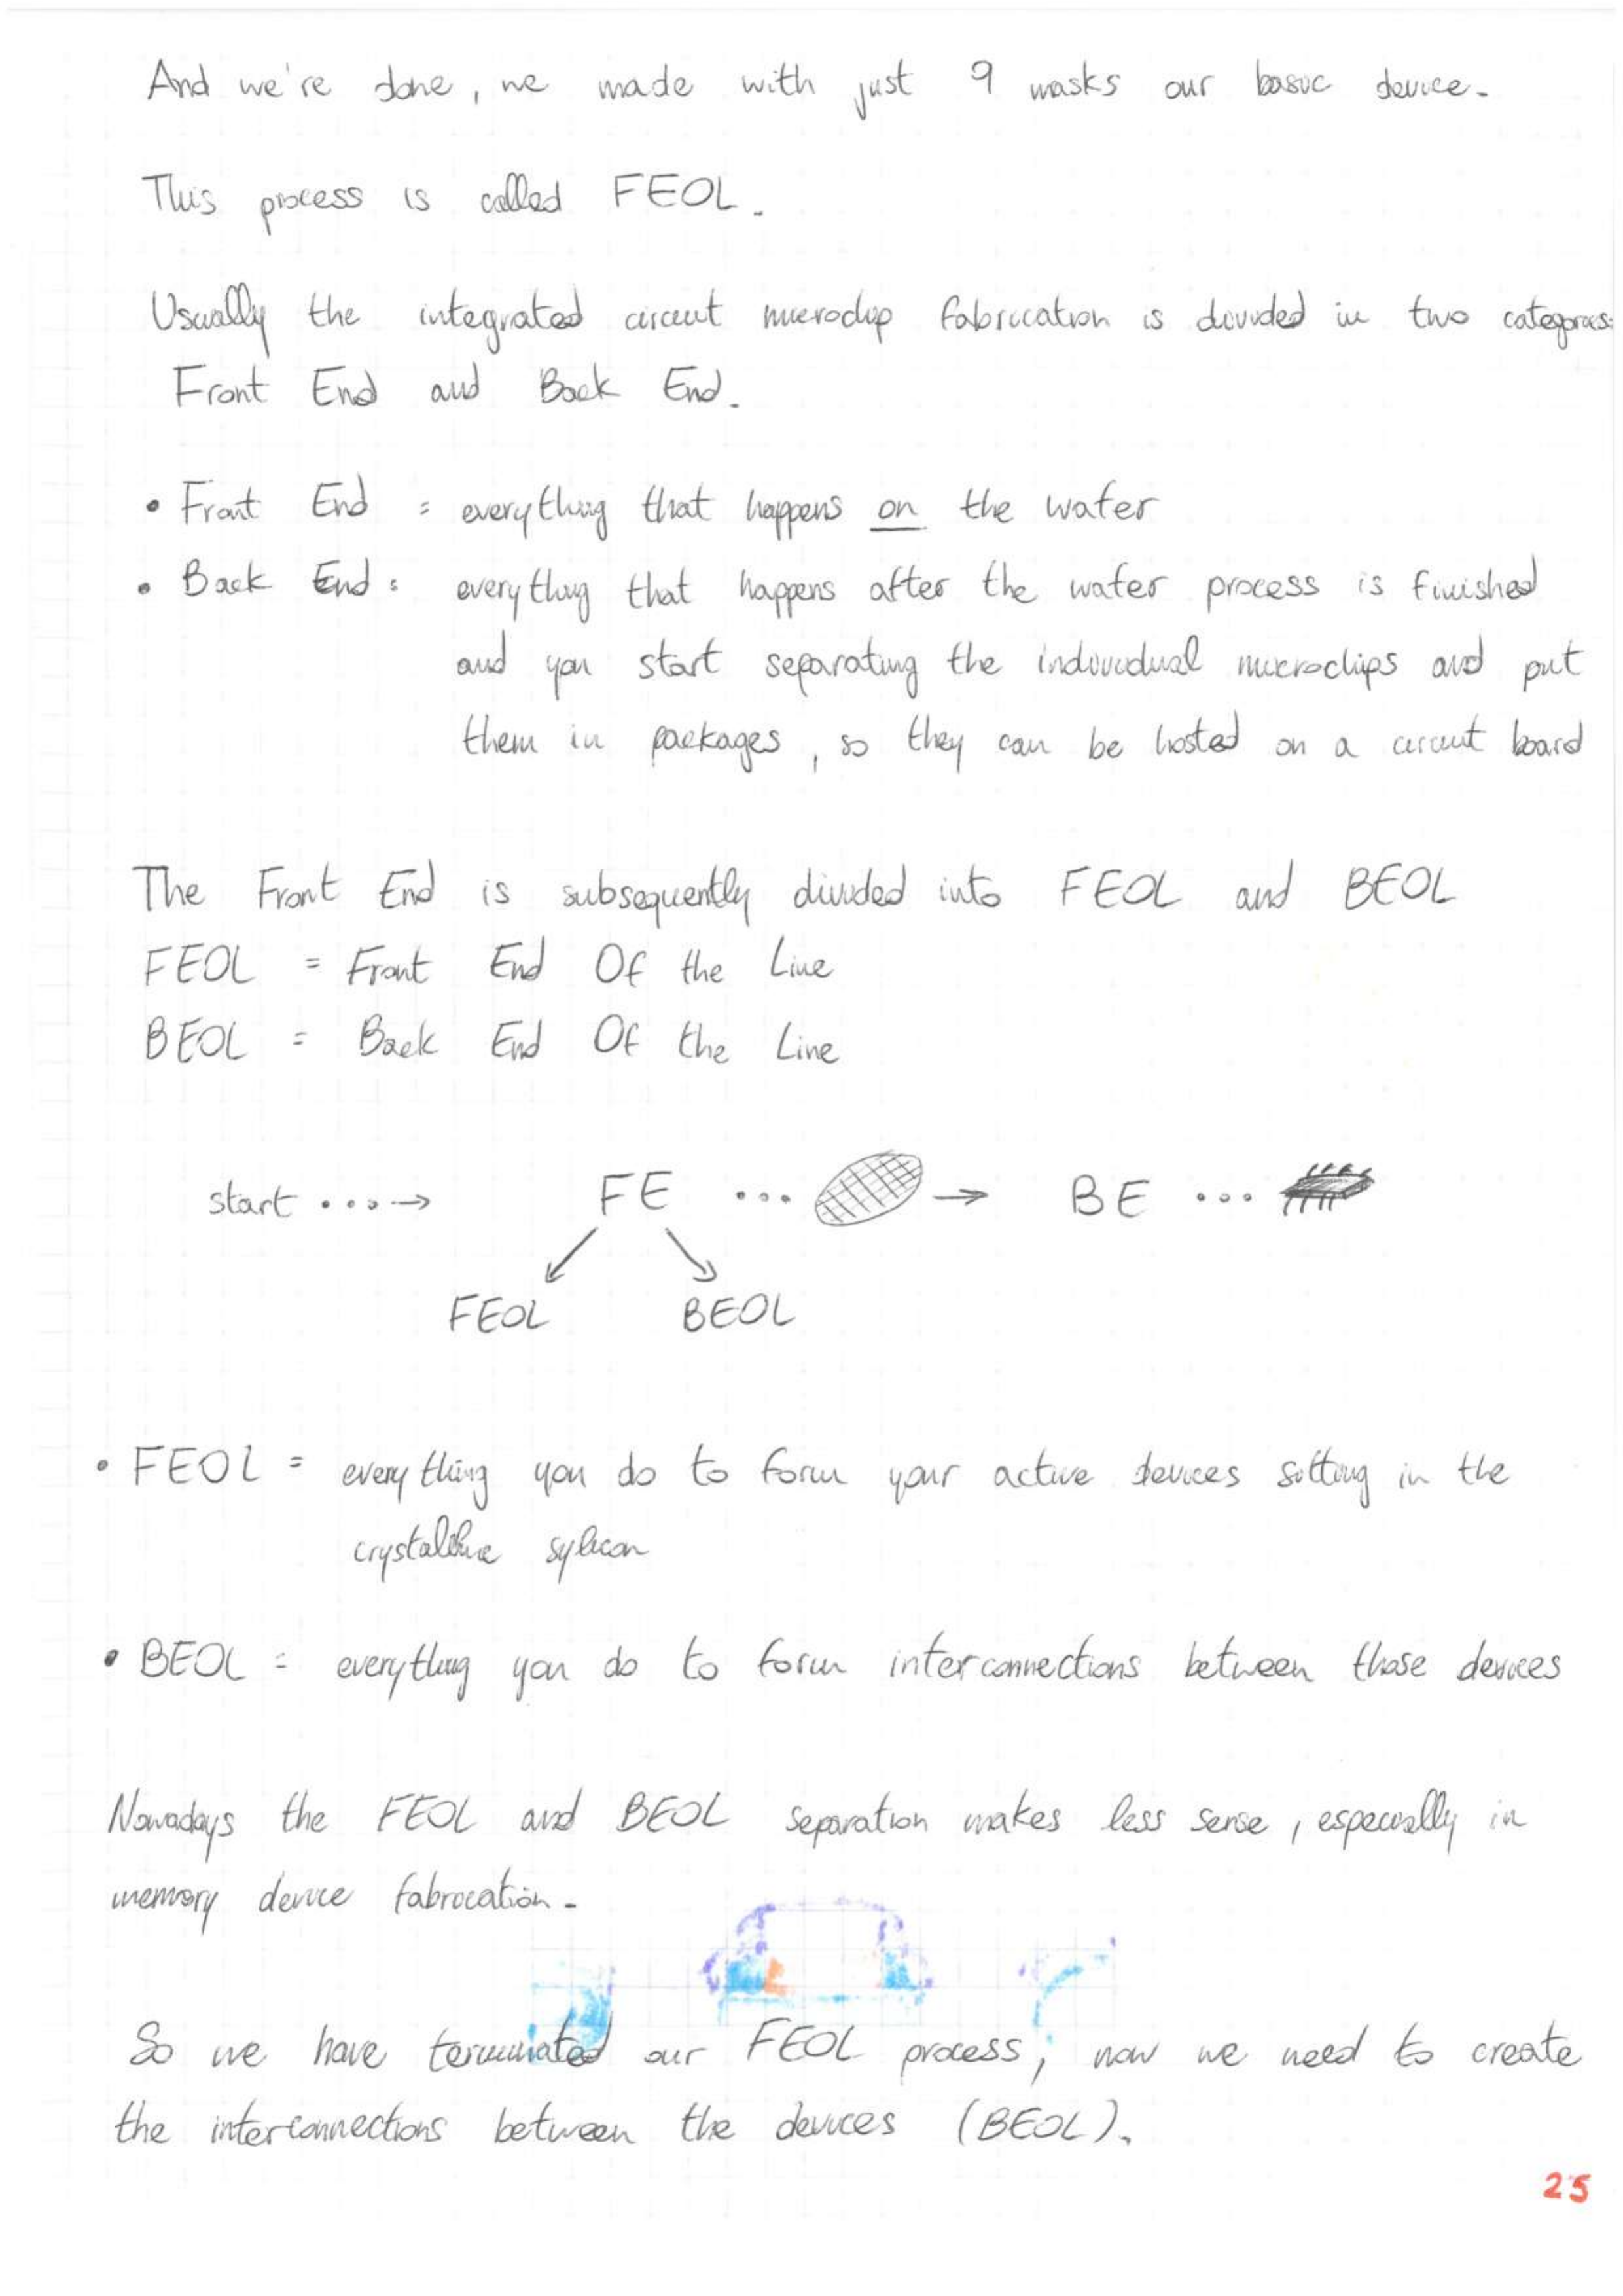 And we're done, we made with just 9 masks our basic device.
This process is called FEOL.
Usually the integrated circuit microchip fabrication is divided in two categories:
Front End and Back End.
• Front End = everything that happens on the wafer
• Back End = everything that happens after the wafer process is finished
and you start separating the individual microchips and put
them in packages, so they can be hosted on a circuit board
The Front End is subsequently divided into FEOL and BEOL
FEOL = Front End Of the Line
BEOL = Back End Of the Line
start ...→ FE ... → BE ...
FEOL BEOL
• FEOL = everything you do to form your active devices sitting in the
crystalline sylicon
• BEOL = everything you do to form interconnections between those devices
Nowadays the FEOL and BEOL separation makes less sense, especially in
memory device fabrication.
So we have terminated our FEOL process, now we need to create
the interconnections between the devices (BEOL).
25